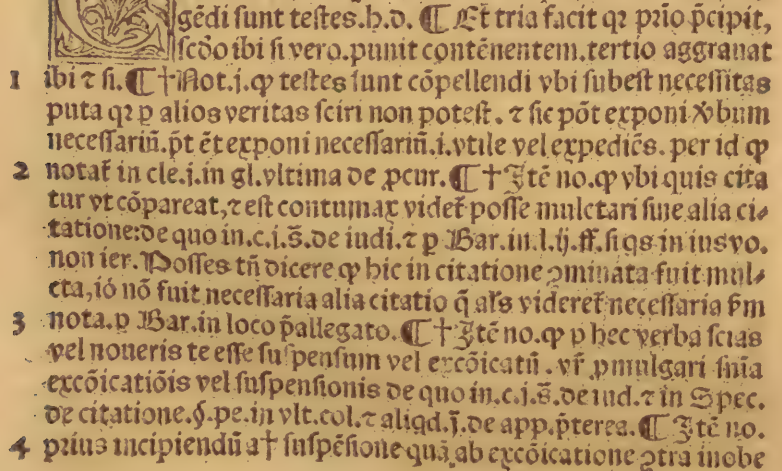 gēdi sunt testes.h.d. ¶ Et tria facit qꝛ pꝛio p̄cipit,
scd́o ibi si vero.punit contēnentem.tertio aggrauat
1 ibi ⁊ si. ¶ †Not.j.ꝙ testes sunt cōpellendi vbi subest necessitas
puta qꝛ ꝑ alios veritas sciri non potest. ⁊ sic pōt exponi ꝟbum
necessariū.p̄t ēt exponi necessariū.i.vtile vel expediēs. per id ꝙ
2 notat᷑ in cle.j.in gl.vltima de ꝓcur. ¶ †Itē no.ꝙ vbi quis cita
tur vt cōpareat,⁊ est contumax videt᷑ posse mulctari sine alia ci⸗
tatione:de quo in.c.j.s̄.de iudi.⁊ ꝑ Bar.in.l.ij.ff.si qs in ius vo.
non ier. Posses tn̄ dicere ꝙ hic in citatione ꝯminata fuit mul⸗
cta,iō nō fuit necessaria alia citatio q̄ al's videret᷑ necessaria ẜm
3 nota.ꝑ Bar.in loco p̄allegato. ¶ †Itē no.ꝙ ꝑ hec verba scias
vel noueris te esse suspensum vel excōicatū .vr̄ ꝓmulgari sn̄ia
excōicatiōis vel suspensionis de quo in.c.j.s̄.de iud.⁊ in Spec.
de citatione.§.pe.in vlt.col.⁊ aliqd.j̄.de app.p̄terea. ¶ Itē no.
4 pꝛius incipiendū a† suspēsione quā ab excōicatione ꝯtra inobe